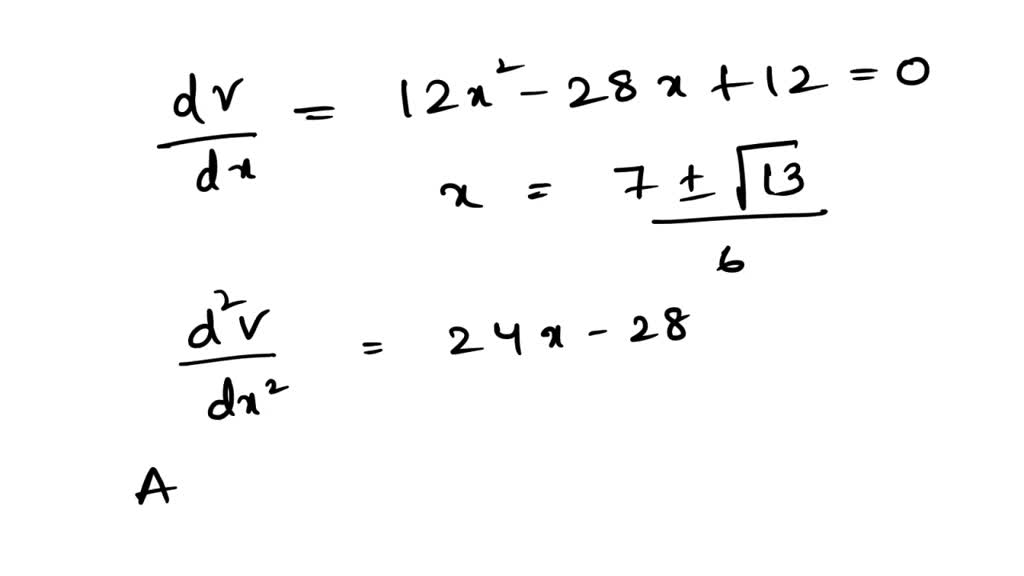 dv/dx = 12x² - 28x + 12 = 0
x = (7 ± √13)/6
d²v/dx² = 24x - 28
A